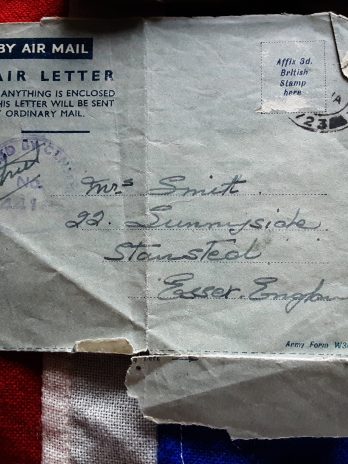 BY AIR MAIL
AIR LETTER
ANYTHING IS ENCLOSED
THIS LETTER WILL BE SENT
ORDINARY MAIL.
Affix 3d.
British
Stamp
here
23
No
Mrs Smith.
22. Sunnyside.
Stansted
Essex. England
Army Form W3